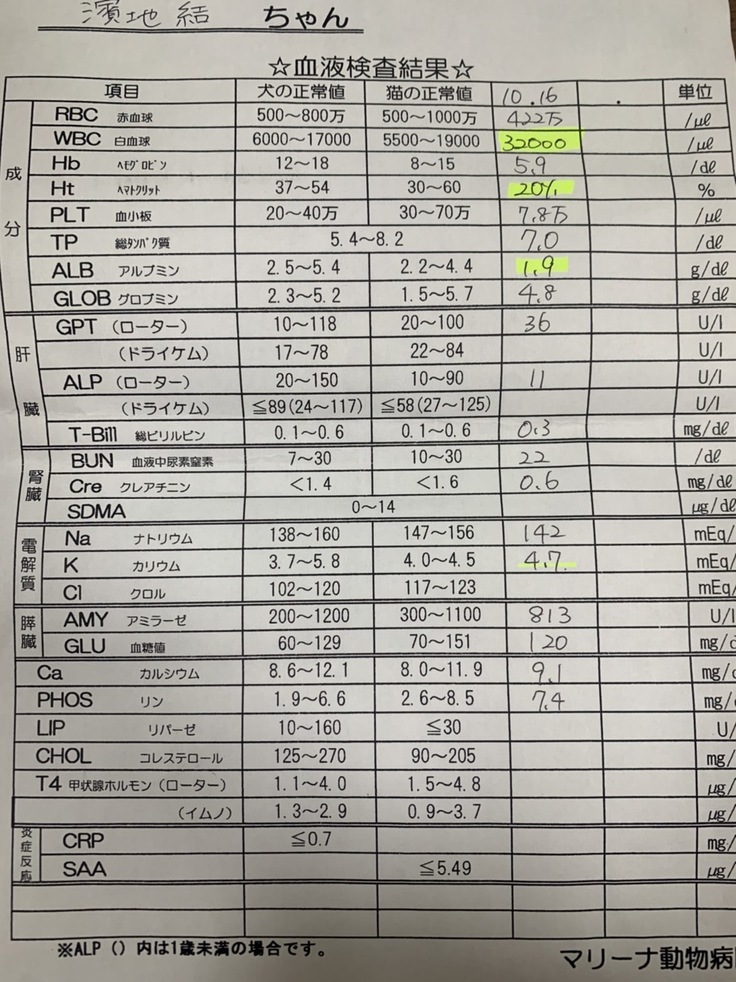 濱地 結 ちゃん
☆血液検査結果☆
項目 犬の正常値 猫の正常値 10.16 . 単位
成分
RBC 赤血球 500～800万 500～1000万 422万 /μl
WBC 白血球 6000～17000 5500～19000 32000 /μl
Hb ﾍﾓｸﾞﾛﾋﾞﾝ 12～18 8～15 5.9 /dl
Ht ﾍﾏﾄｸﾘｯﾄ 37～54 30～60 20% %
PLT 血小板 20～40万 30～70万 7.8万 /μl
TP 総ﾀﾝﾊﾟｸ質 5.4～8.2 7.0 /dl
ALB アルブミン 2.5～5.4 2.2～4.4 1.9 g/dl
GLOB グロブミン 2.3～5.2 1.5～5.7 4.8 g/dl
肝臓
GPT （ローター） 10～118 20～100 36 U/l
（ドライケム） 17～78 22～84 U/l
ALP （ローター） 20～150 10～90 11 U/l
（ドライケム） ≦89(24～117) ≦58(27～125) U/l
T-Bill 総ビリルビン 0.1～0.6 0.1～0.6 0.3 mg/dl
腎臓
BUN 血液中尿素窒素 7～30 10～30 22 /dl
Cre クレアチニン <1.4 <1.6 0.6 mg/dl
SDMA 0～14 μg/dl
電解質
Na ナトリウム 138～160 147～156 142 mEq/
K カリウム 3.7～5.8 4.0～4.5 4.7 mEq/
Cl クロル 102～120 117～123 mEq/
膵臓
AMY アミラーゼ 200～1200 300～1100 813 U/l
GLU 血糖値 60～129 70～151 120 mg/
Ca カルシウム 8.6～12.1 8.0～11.9 9.1 mg/
PHOS リン 1.9～6.6 2.6～8.5 7.4 mg/
LIP リパーゼ 10～160 ≦30 U/
CHOL コレステロール 125～270 90～205 mg/
T4 甲状腺ホルモン（ローター） 1.1～4.0 1.5～4.8 μg/
（イムノ） 1.3～2.9 0.9～3.7 μg/
炎症反応
CRP ≦0.7 mg/
SAA ≦5.49 μg/
※ALP（）内は1歳未満の場合です。
マリーナ動物病